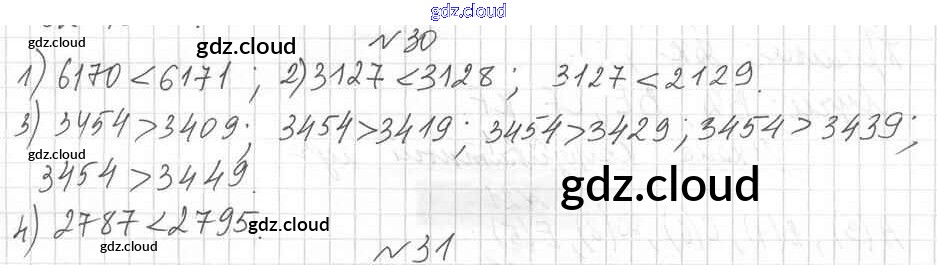 gdz.cloud
gdz.cloud gdz.cloud №30 gdz.cloud
1) 6170 < 6171 ; 2) 3127 < 3128 ; 3127 < 2129.
3) 3454 > 3409; 3454 > 3419; 3454 > 3429; 3454 > 3439;
gdz.cloud
3454 > 3449. gdz.cloud
4) 2787 < 2795. gdz.cloud gdz.cloud
gdz.cloud №31 gdz.cloud